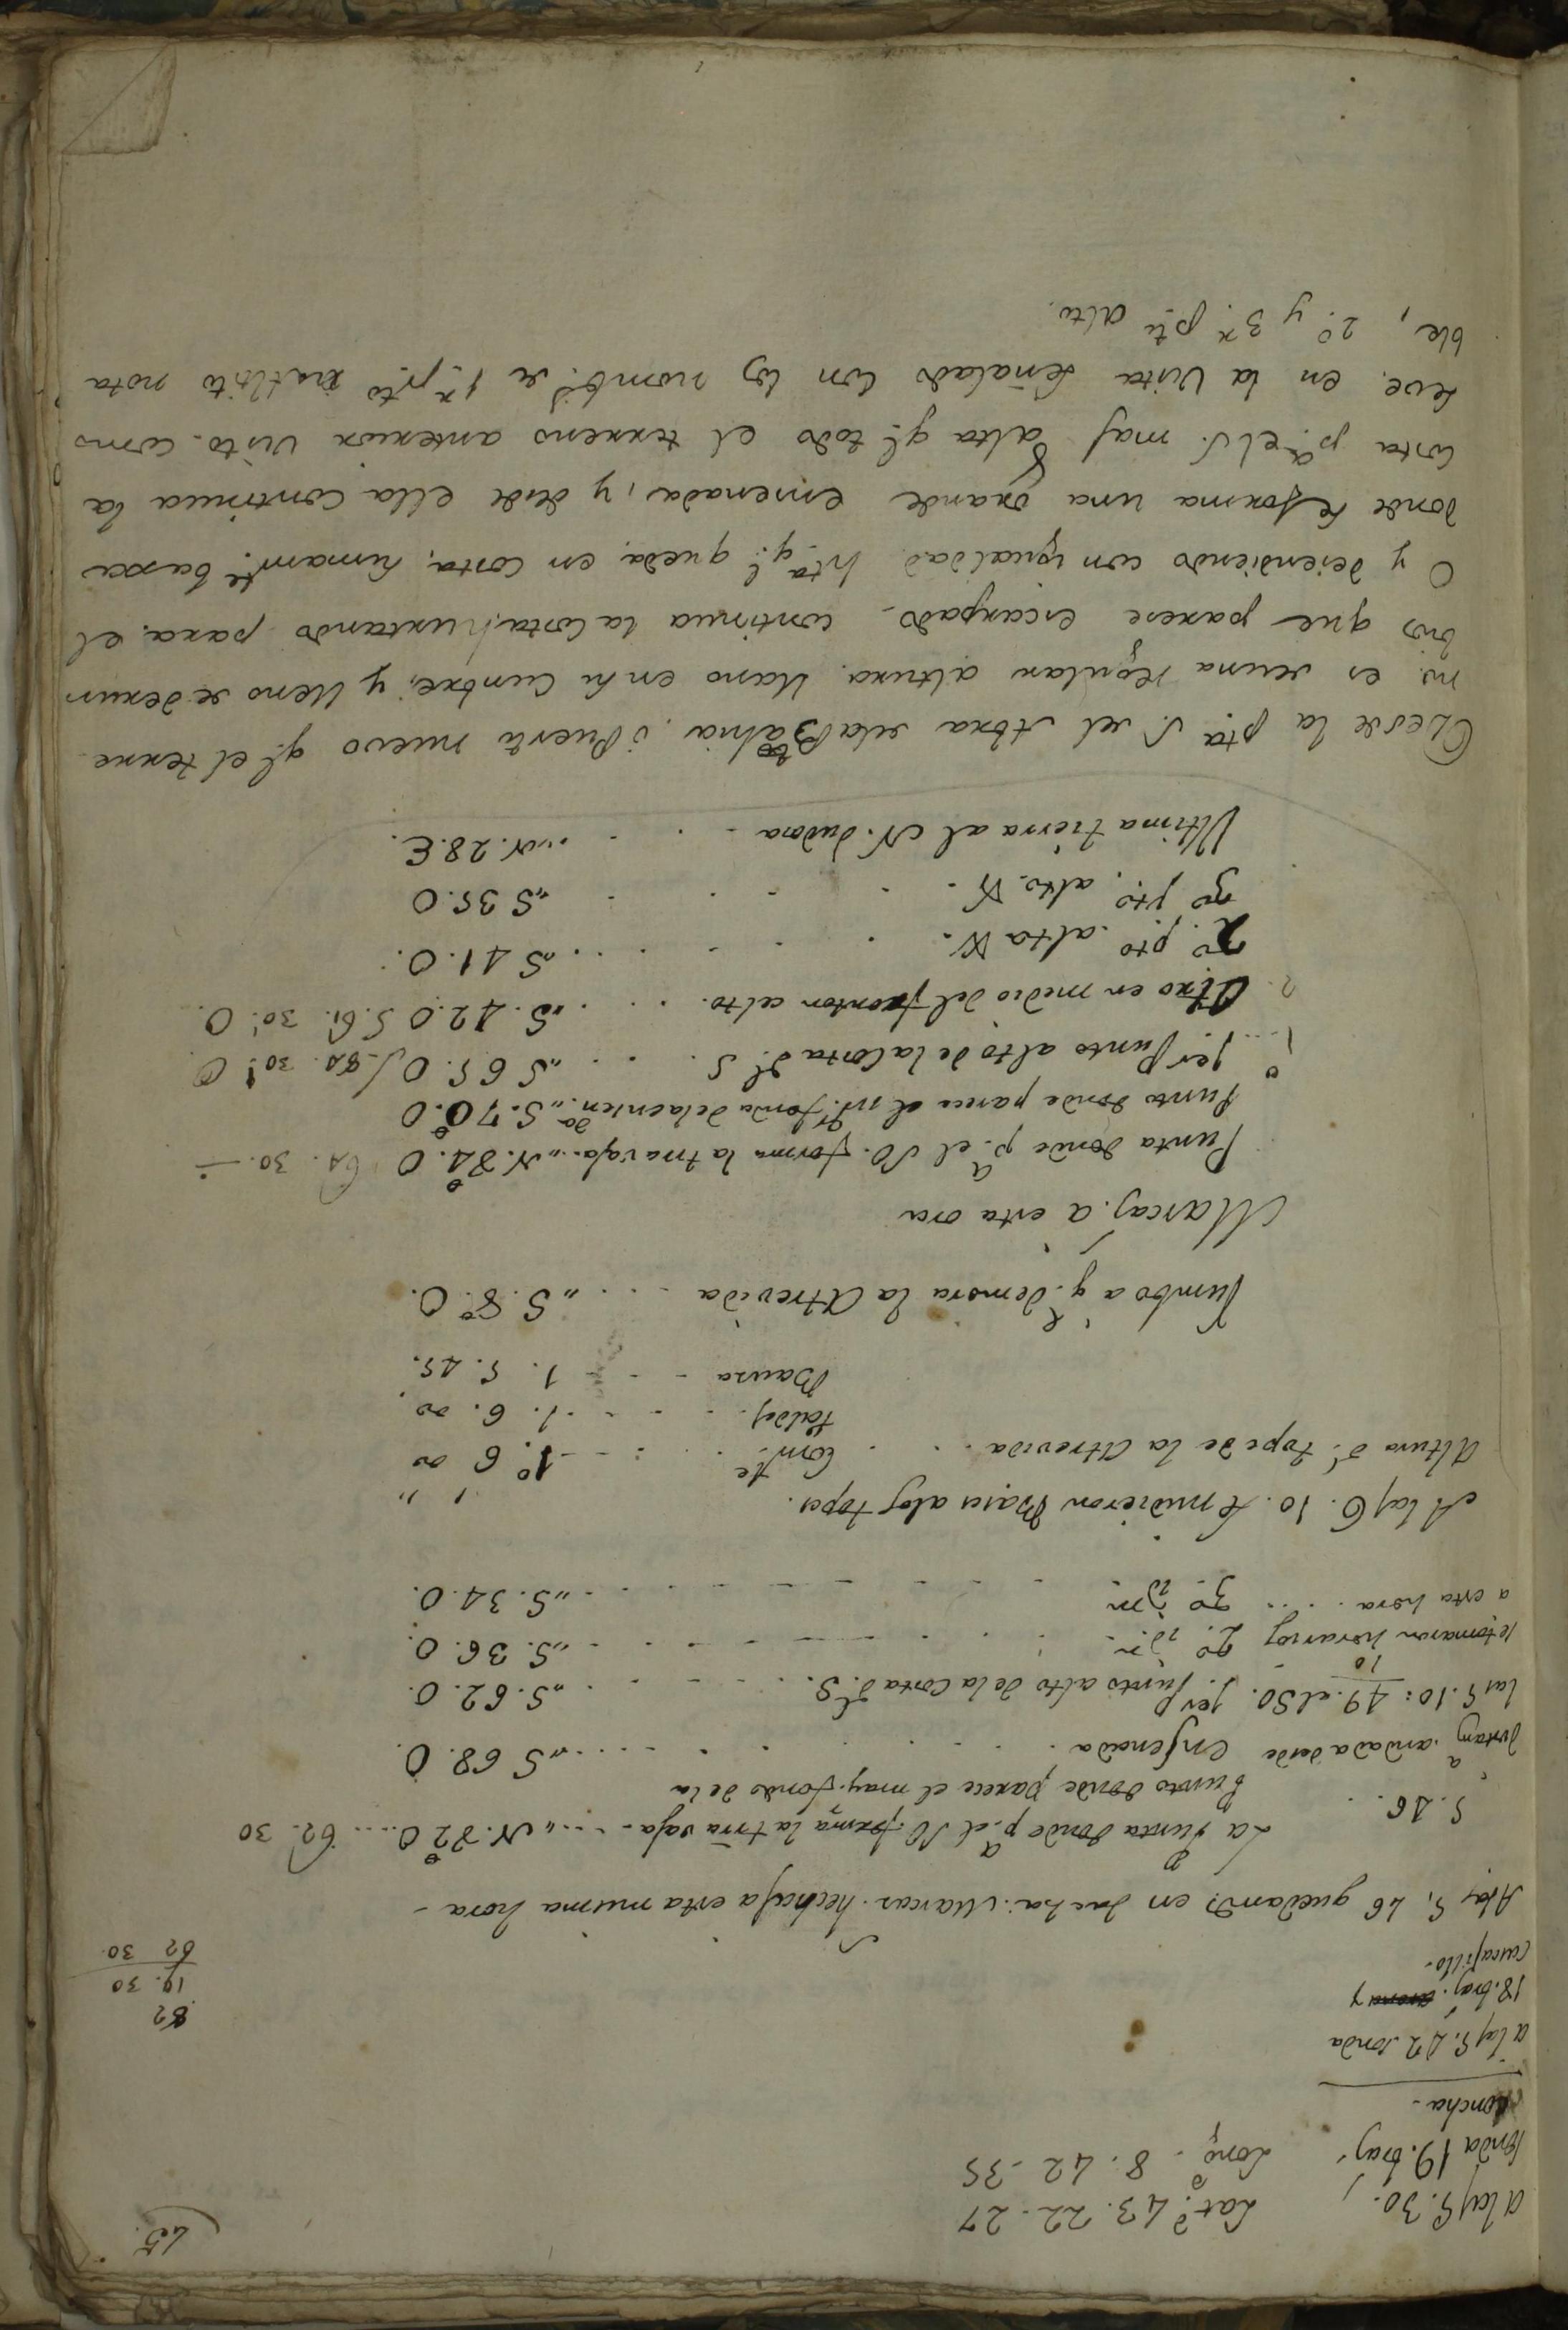 45.
a las 5. 30.
sonda 19. braz.
concha.
Lat.d 43. 22. 27
Long. 8. 42. 35
a las 5. 42 sonda
18. braz. arena y
cascajillo.
82
19. 30
62 30
A las 5, 46 quedando en facha. Marcas. hechas a esta misma hora
5. 46 . .
La Punta donde p.a el SO. forma la trra vaja. . . . N. 82° O. . . . 62. 30
Punto donde parece el may. fondo de la
Ensenada . . . . . . . . . S 68. O.
andada desde
las 5. 10: 49. al SO.
10
1er Punto alto de la Costa d.l S. . . . . . S. 62. O.
se tomaron horarios
2° id.m . . . . . . . S. 36. O.
a esta hora . . . .
3° id.m . . . . . . . S. 34. O.
A las 6. 10. se midieron Bases a los topes.
Altura d.l tope de la Atrevida . . . Com.te . . . . 1° 6 00
. . . . . 1. 6. 00
Bauza . . . 1. 5. 45.
Rumbo a q.e demora la Atrevida . . . . S. 8° O.
Marcas. a esta ora
Punta donde p.a el SO. forma la trra vaja . . N. 84° O 64. 30.
Punto donde parece el fondo de la ensen.da . . S. 70° O
1 . . . 1er Punto alto de la Costa d.l S . . . . S 65. O
2. Otro en medio del fronton alto. . . . . S. 42. O S. 61. 30' O.
2° pto. alto . . . . . . . S 41. O.
3° pto. alto . . . . . . S 35. O
Ultima tierra al N. dudosa . . . . N. 28. E.
Desde la pta S. del Abra de la Bahia, ó Puerto nuevo q.e el terre
no. es de una regular altura. llano en su Cumbre, y lleno de derum
bios que parese escarpado. continua la Costa hurtando para. el
O y desendiendo con igualdad. hta q.e queda. en costa. sumam.te baxa
donde se forma una grande ensenada, y desde ella continua la
costa p.a el S. mas alta q.e todo el terreno anterior visto. como
se ve. en la Vista señalado con los nomb.s de 1.r pto nota
ble, 2.° y 3.r pto alto.